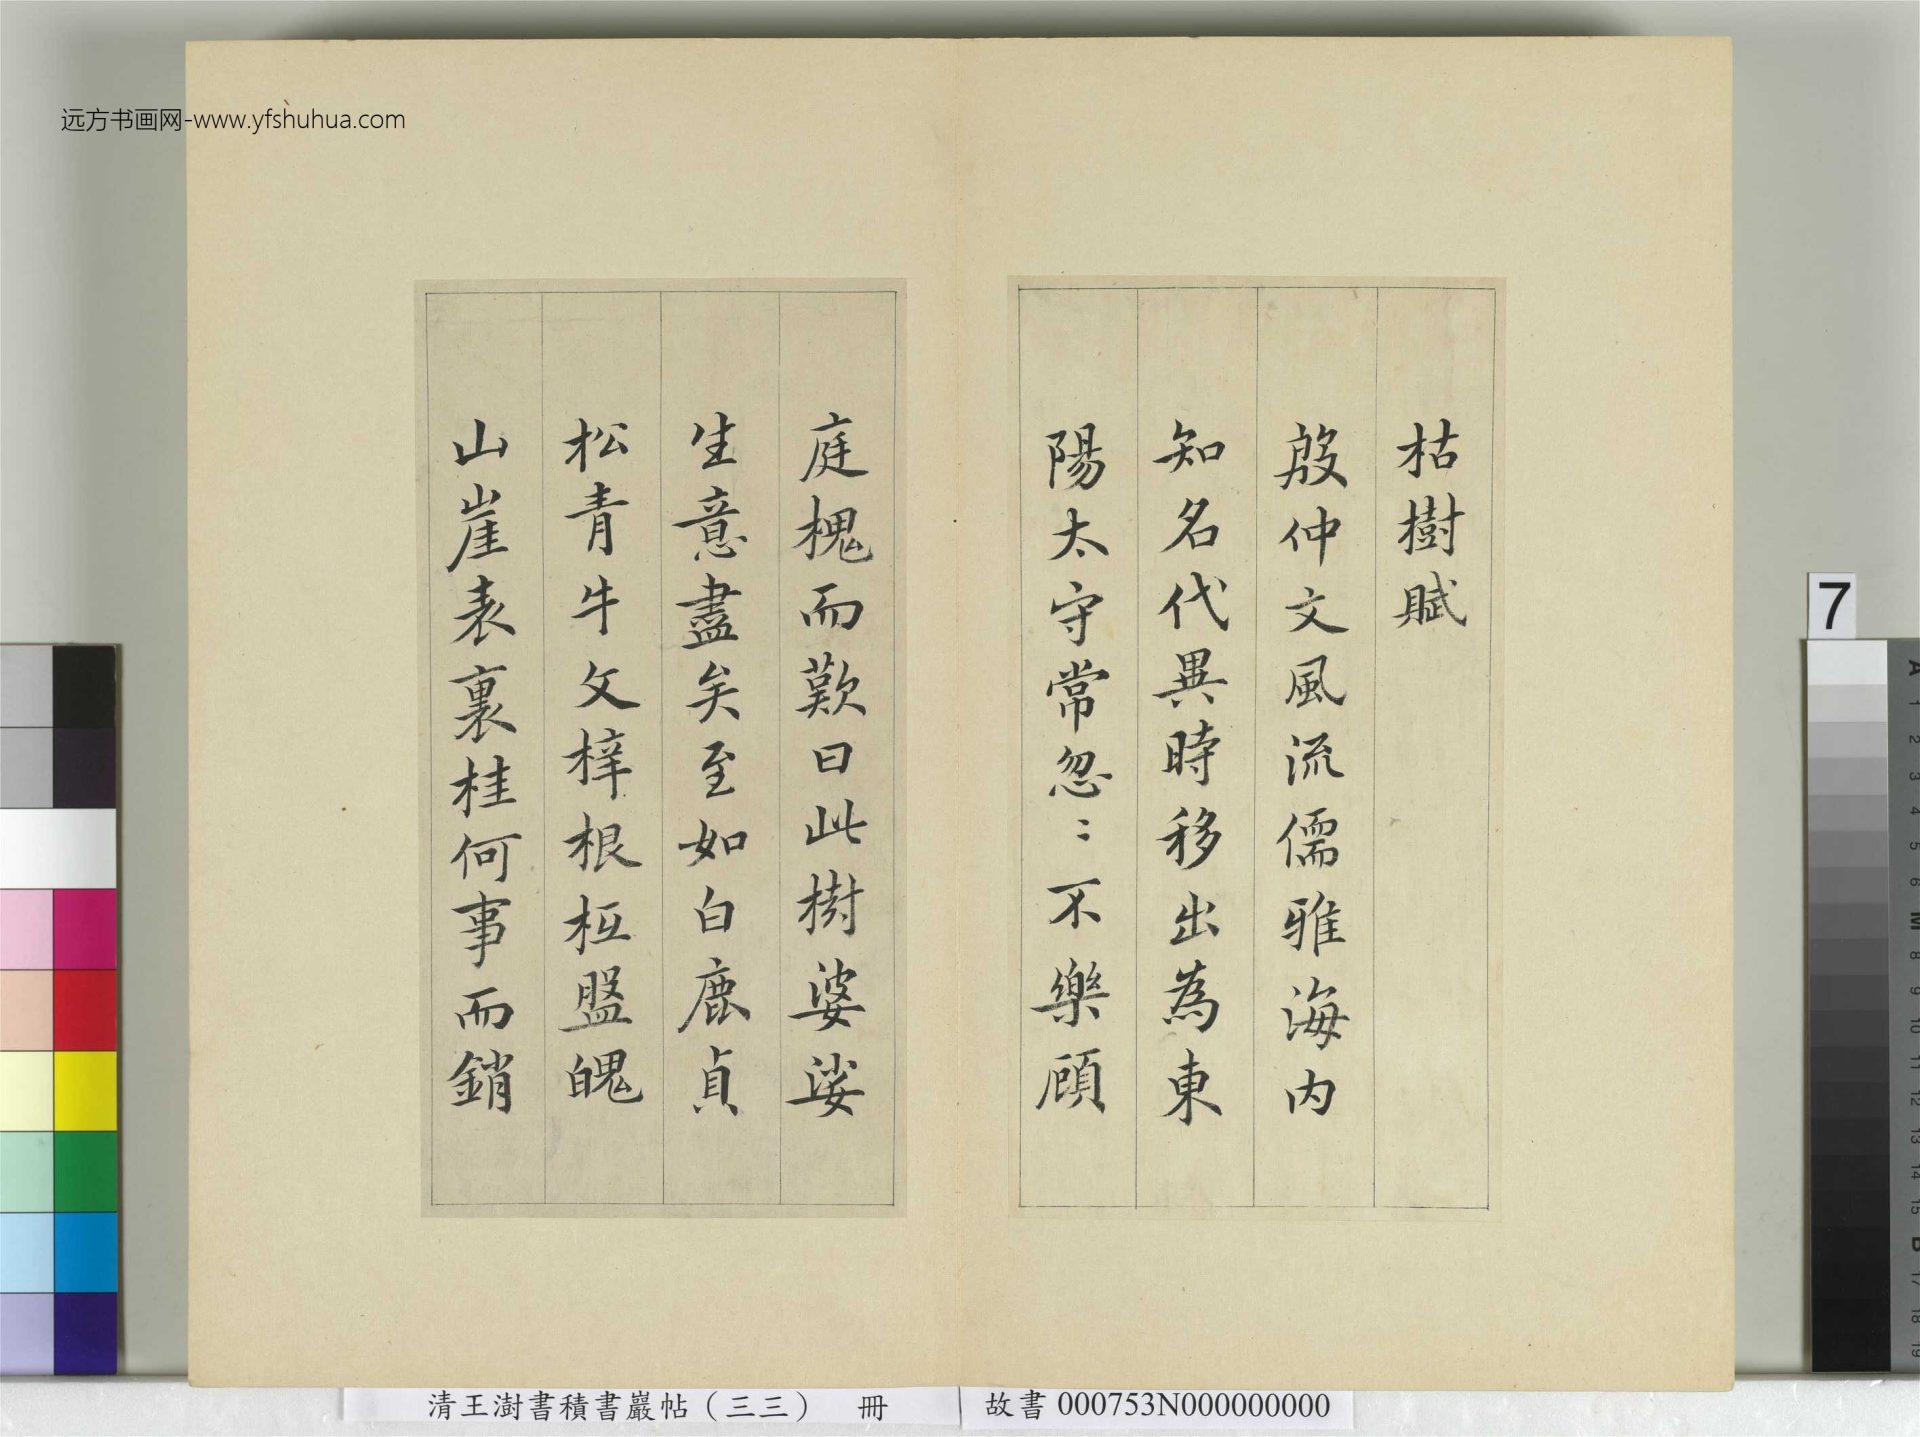 远方书画网-www.yfshuhua.com
枯樹賦
殷仲文風流儒雅海内
知名代異時移出為東
陽太守常忽〻不樂顧
庭槐而歎曰此樹婆娑
生意盡矣至如白鹿貞
松青牛文梓根柢盤魄
山崖表裏桂何事而銷
清王澍書積書巖帖（三三） 冊
故書 000753N000000000
7
A 1 2 3 4 5 6 M 8 9 10 11 12 13 14 15 B 17 18 19